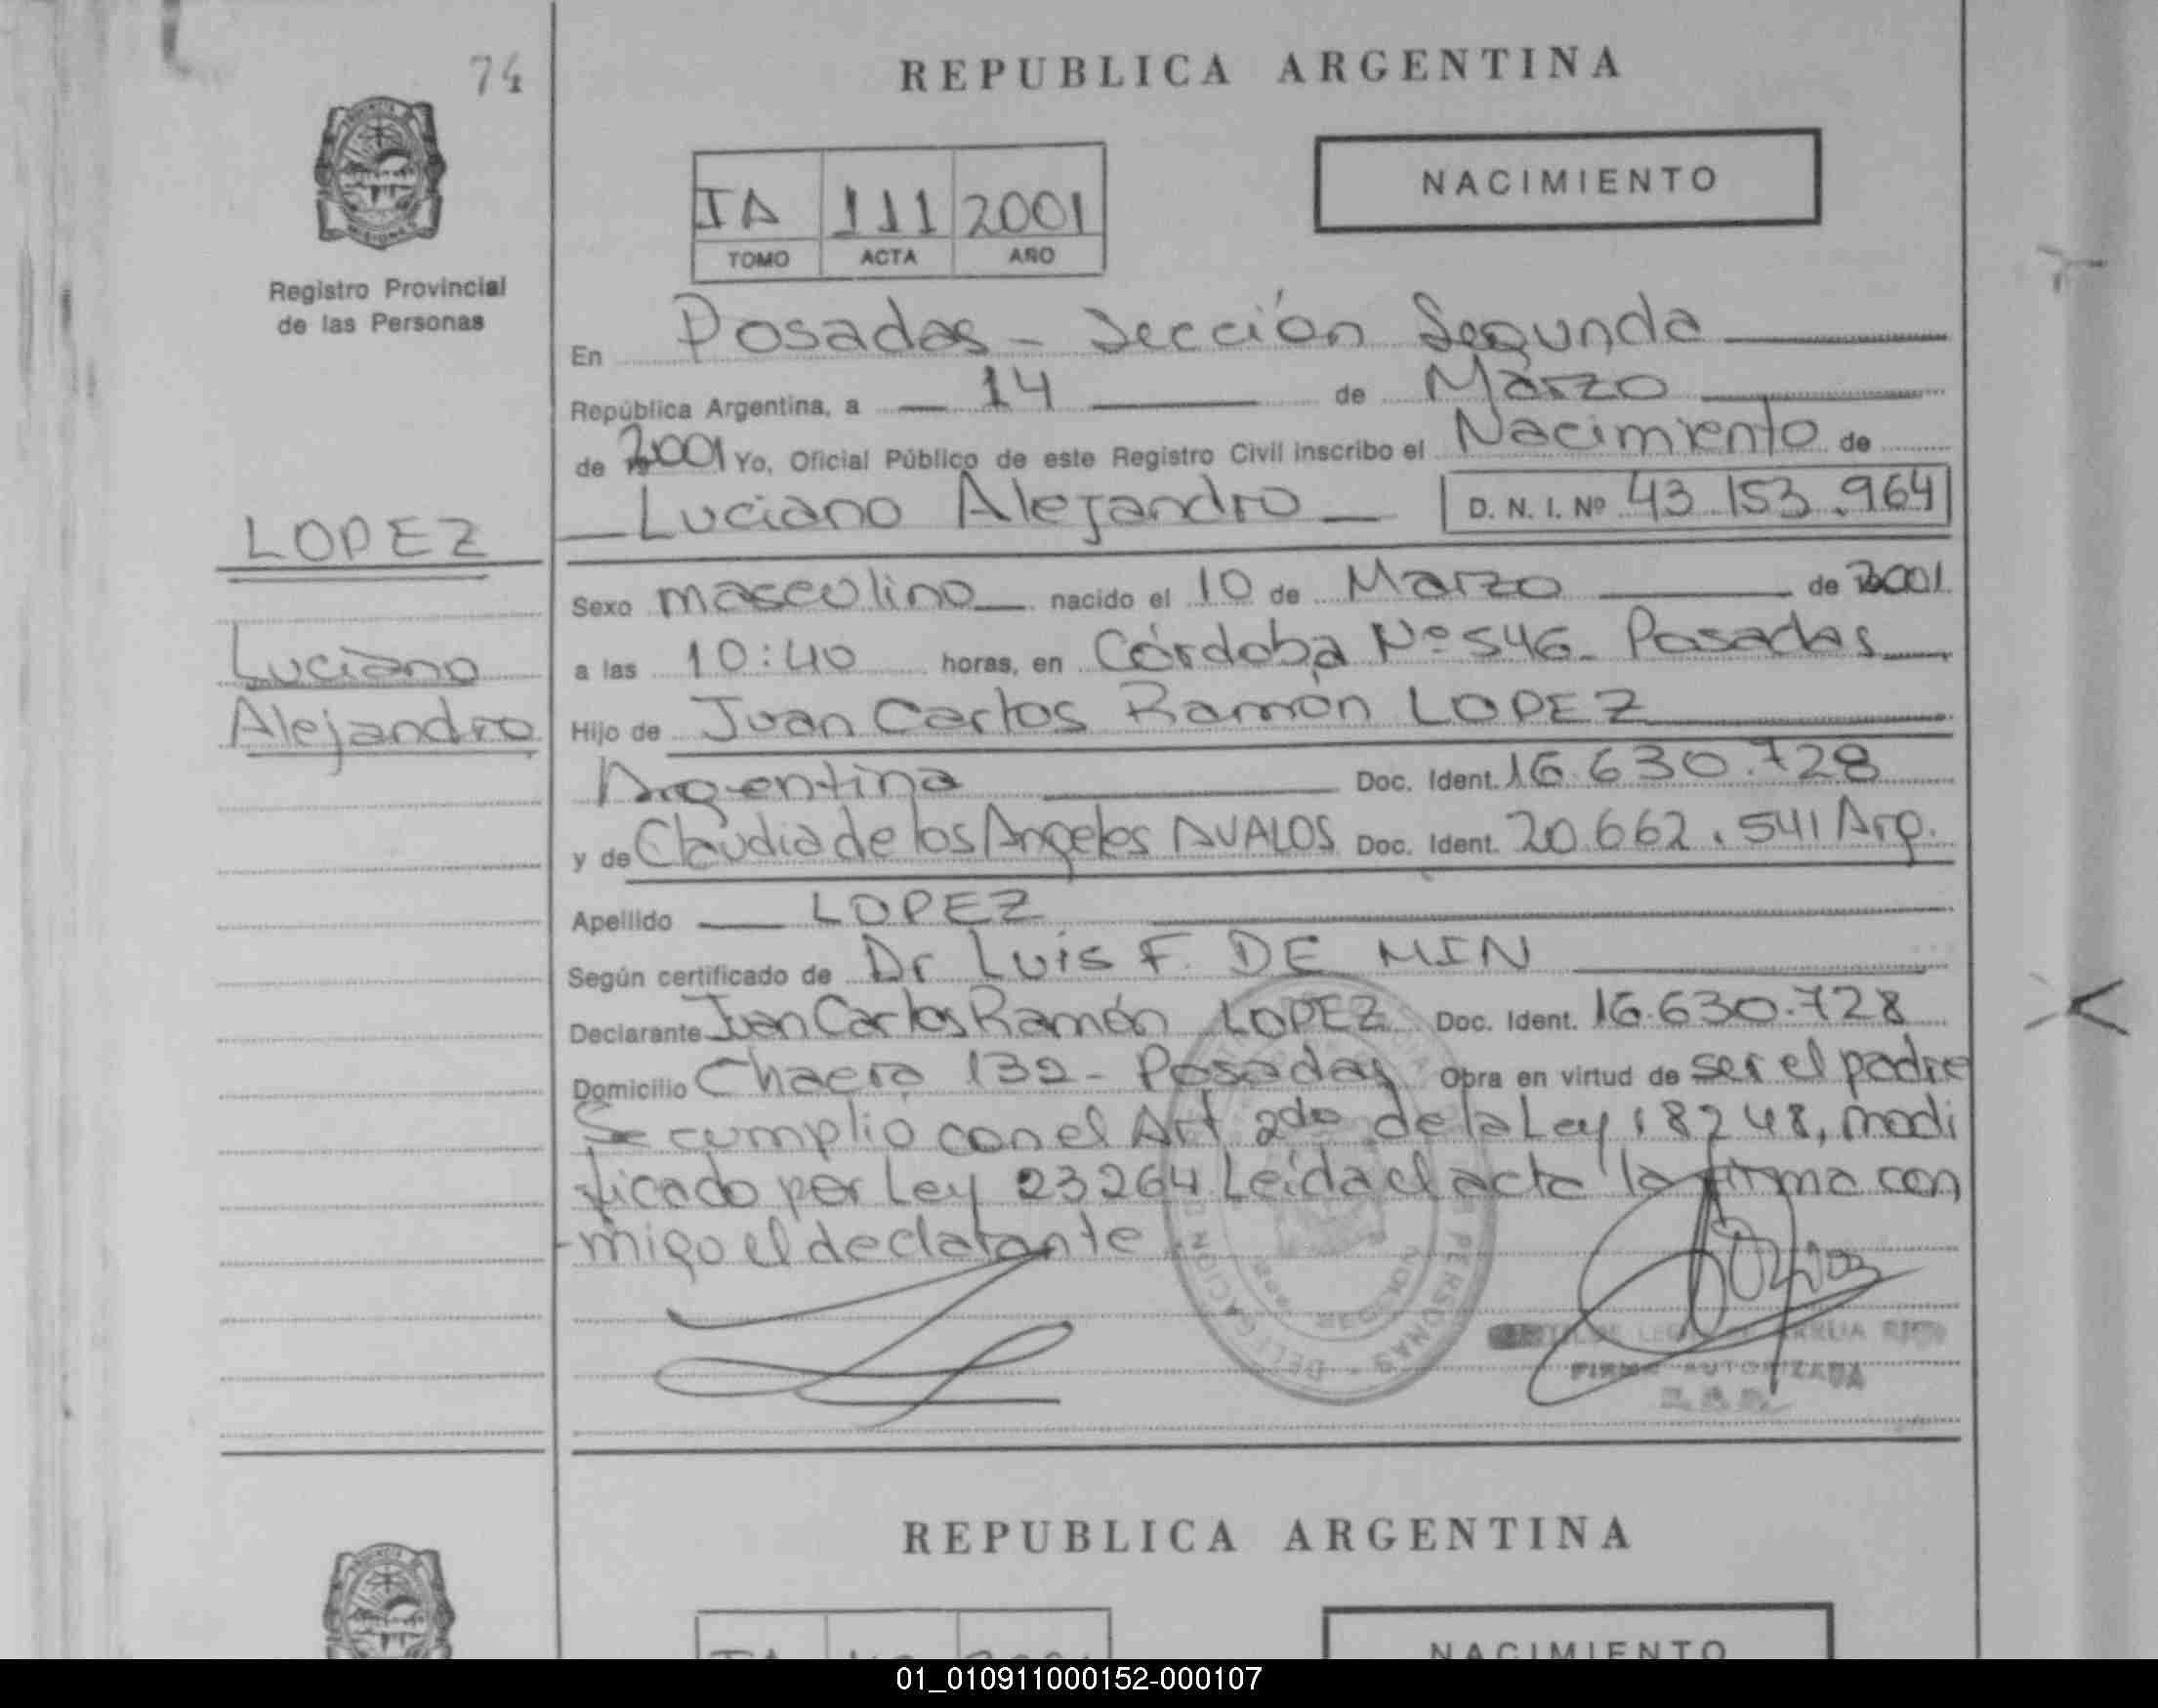 74
REPUBLICA ARGENTINA
NACIMIENTO
IA 111 2001
TOMO ACTA AÑO
Registro Provincial
de las Personas
En Posadas - Sección Segunda
República Argentina, a 14 de Marzo
de 2001 Yo, Oficial Público de este Registro Civil inscribo el Nacimiento de
Luciano Alejandro D. N. I. Nº 43.153.964
LOPEZ
Luciano
Alejandro
Sexo masculino nacido el 10 de Marzo de 2001
a las 10:40 horas, en Córdoba Nº 546- Posadas
Hijo de Juan Carlos Ramón LOPEZ
Argentina Doc. Ident. 16.630.728
y de Claudia de los Angeles AVALOS Doc. Ident. 20.662.541 Arg.
Apellido LOPEZ
Según certificado de Dr Luis F. DE MIN
Declarante Juan Carlos Ramón LOPEZ Doc. Ident. 16.630.728
Domicilio Chacra 132- Posadas Obra en virtud de ser el padre
Se cumplió con el Art 2do de la Ley 18248, modi
ficado por Ley 23264 Leída el acta la firma con
migo el declarante
PERSONAS - DELEGACION
FIRMA AUTORIZADA
REPUBLICA ARGENTINA
NACIMIENTO
01_010911000152-000107